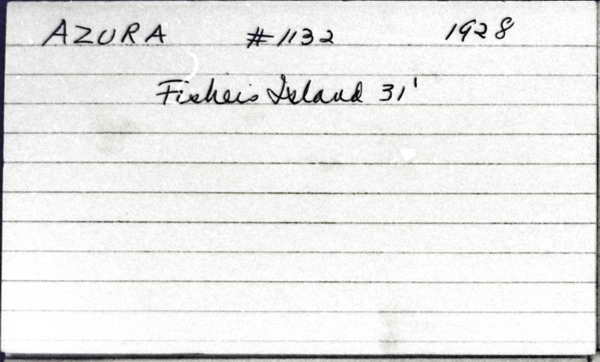 AZURA #1132 1928
Fishers Island 31'